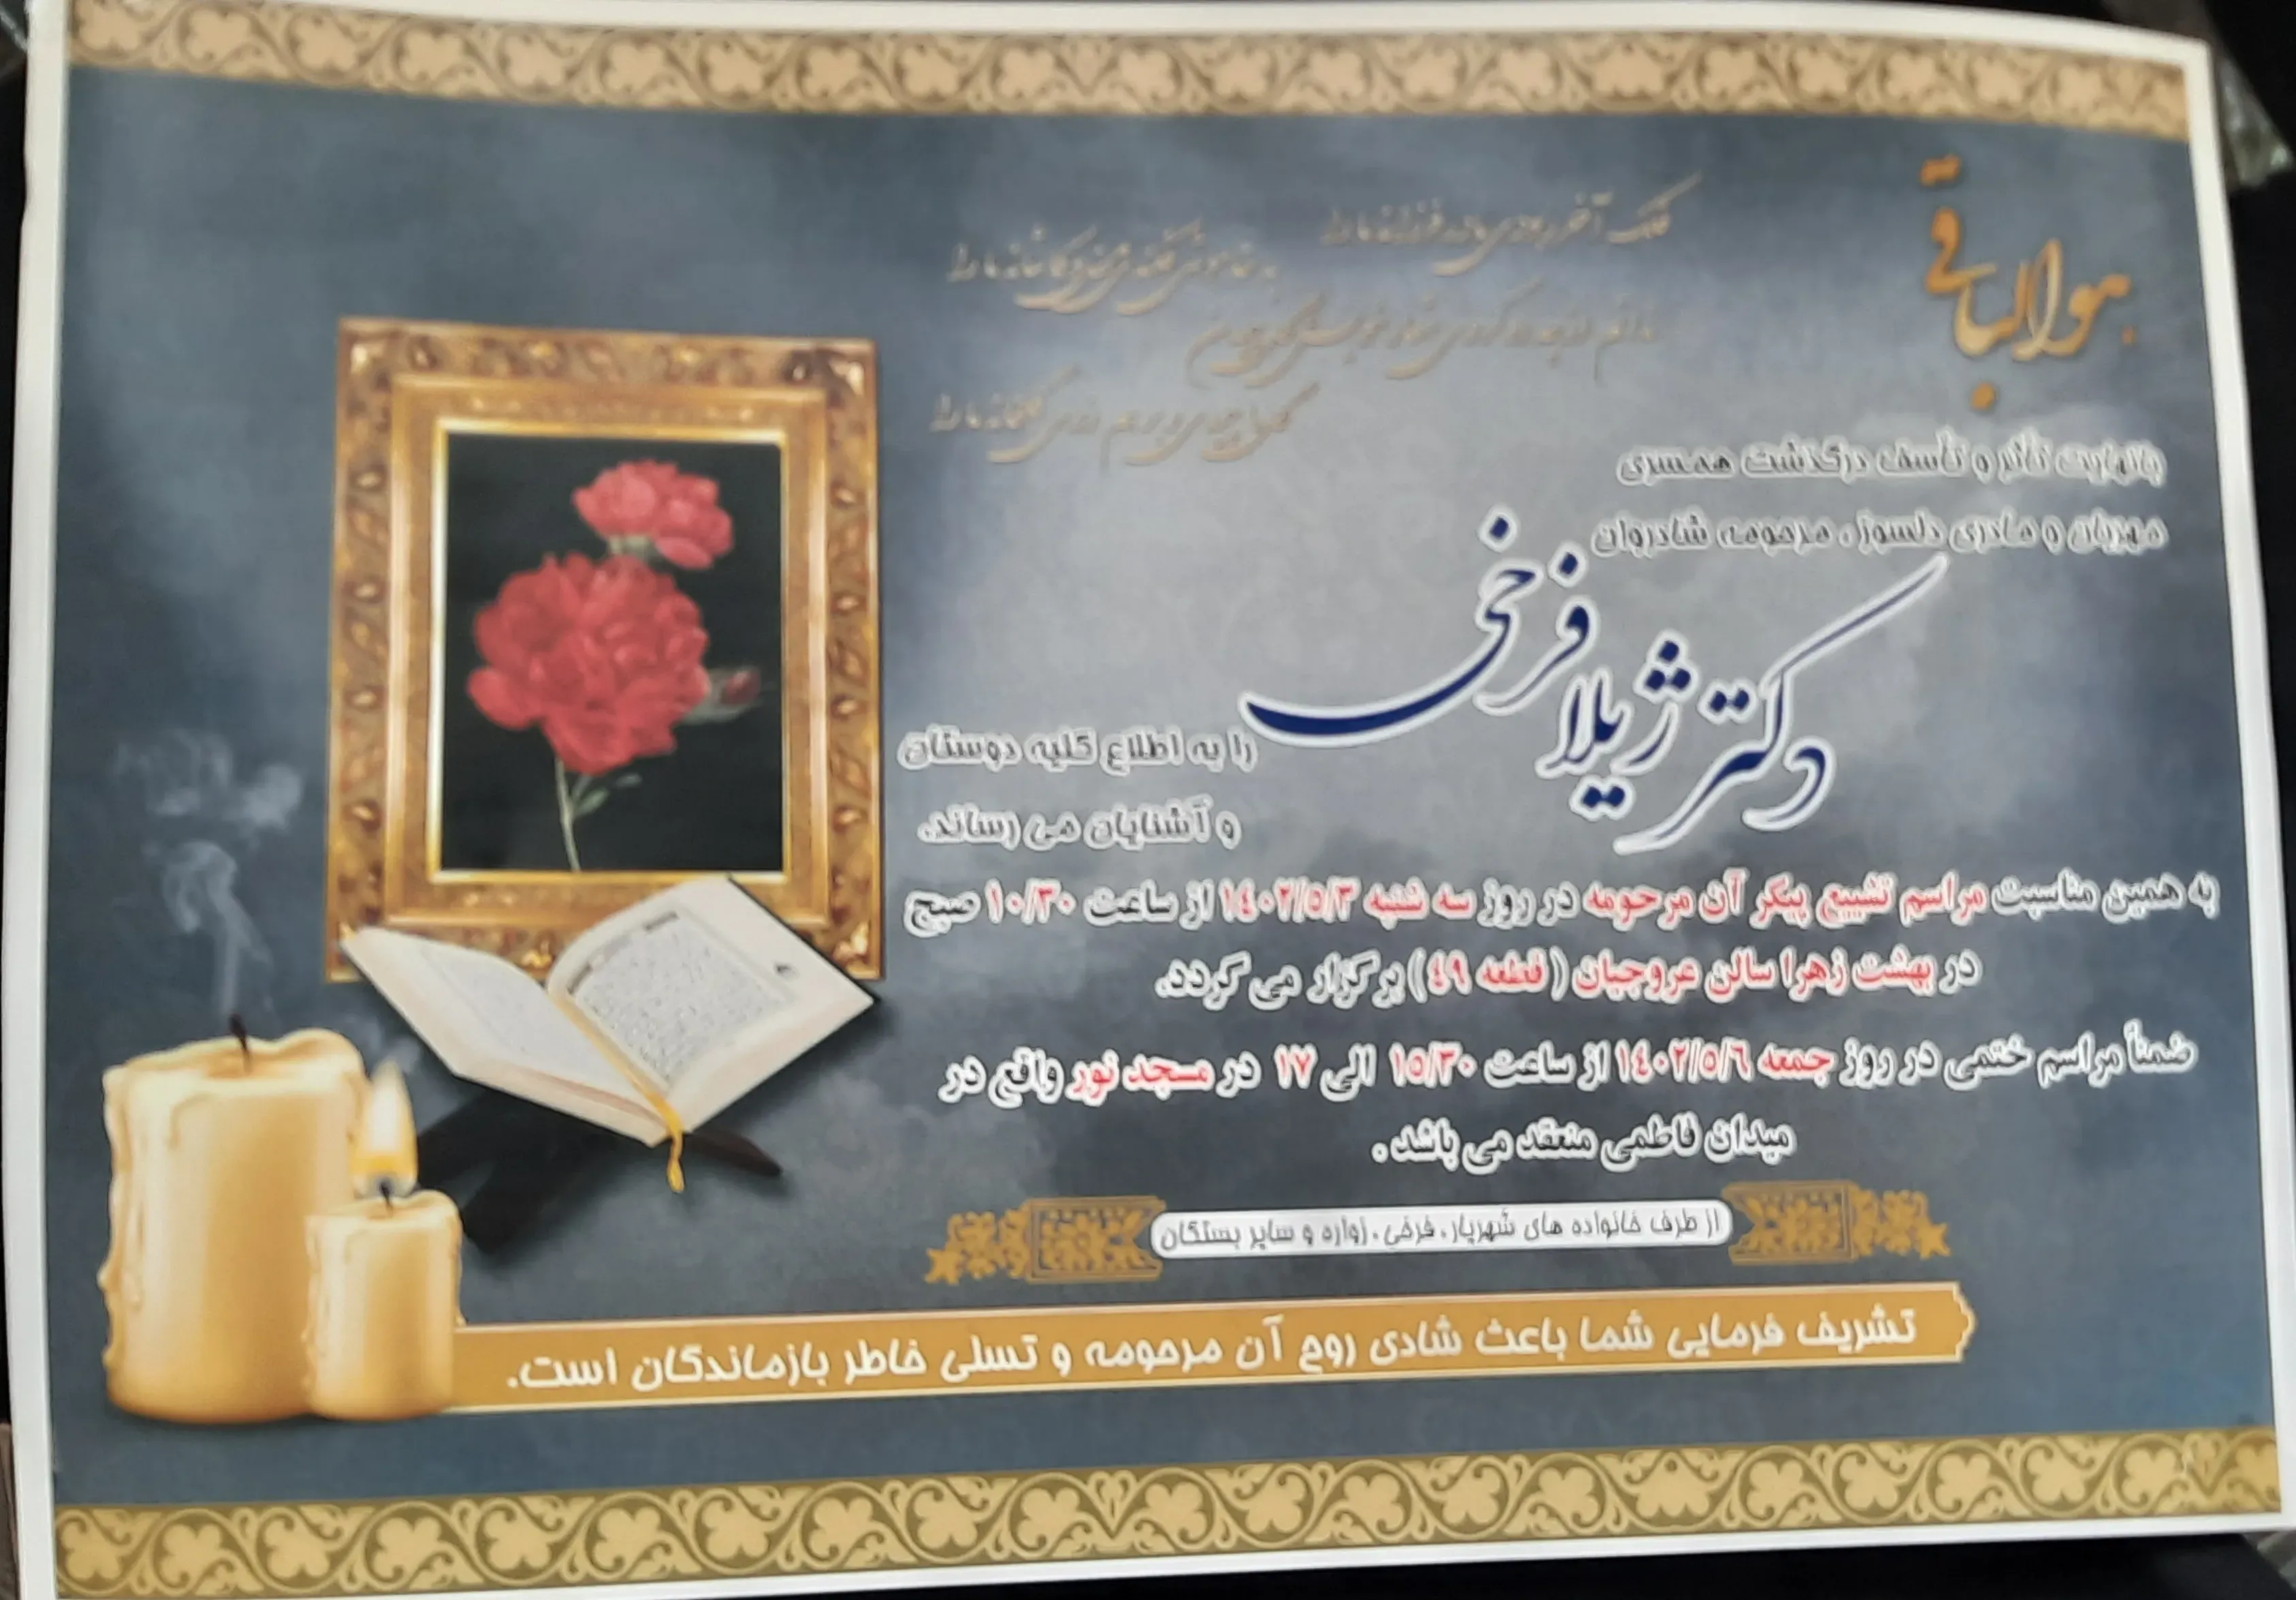 هوالباقی
فلک آخر ربودی در فرزانه ما را
به خاموشی فکندی
ما را
بانهایت تأثر و تأسف درگذشت همسری
مهربان و مادری دلسوز، مرحومه شادروان
دکتر ژیلا فرخی
را به اطلاع کلیه دوستان
و آشنایان می رساند.
به همین مناسبت مراسم تشییع پیکر آن مرحومه در روز سه شنبه ۱۴۰۲/۵/۳ از ساعت ۱۰/۳۰ صبح
در بهشت زهرا سالن عروجیان (قطعه ۴۹) برگزار می گردد.
ضمناً مراسم ختمی در روز جمعه ۱۴۰۲/۵/۶ از ساعت ۱۵/۳۰ الی ۱۷ در مسجد نور واقع در
میدان فاطمی منعقد می باشد.
از طرف خانواده های شهریار، فرخی، زواره و سایر بستگان
تشریف فرمایی شما باعث شادی روح آن مرحومه و تسلی خاطر بازماندگان است.